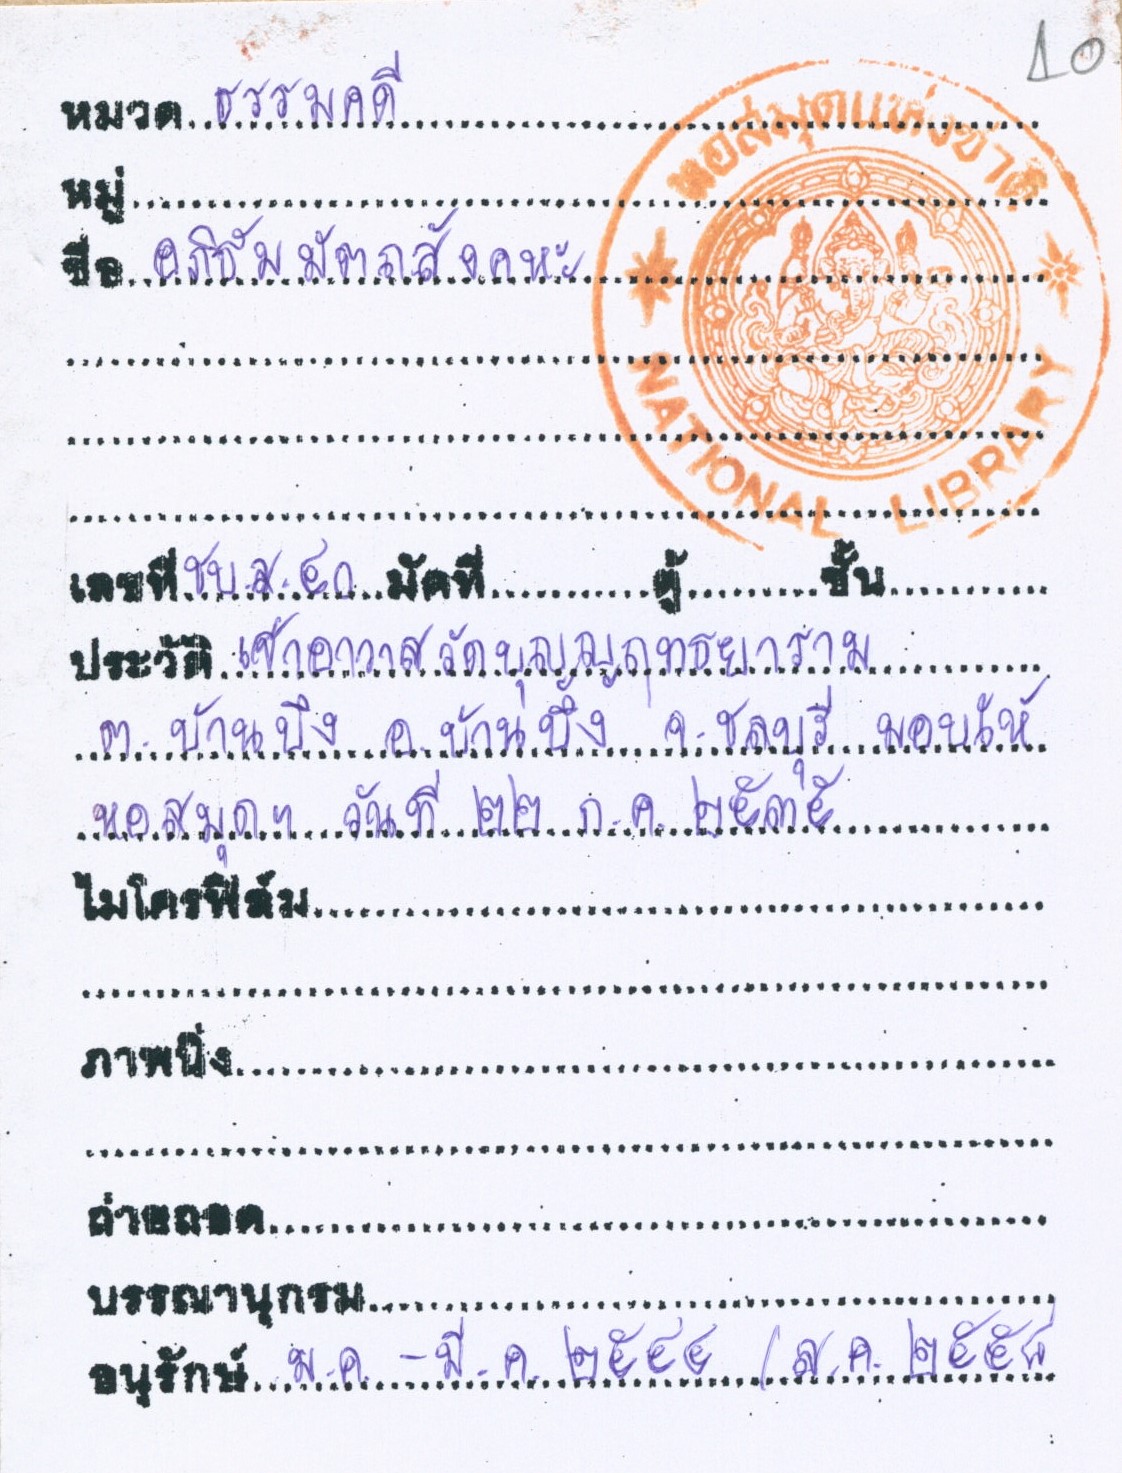 10
หอสมุดแห่งชาติ
NATIONAL LIBRARY
หมวด ธรรมคดี
หมู่
ชื่อ อภิธัมมัตถสังคหะ
เลขที่ ชบ.ส. ๕๐ มัดที่ ตู้ ชั้น
ประวัติ เจ้าอาวาสวัดบุญญฤทธยาราม
ต. บ้านบึง อ. บ้านบึง จ. ชลบุรี มอบให้
หอสมุดฯ วันที่ ๒๒ ก.ค. ๒๕๓๕
ไมโครฟิล์ม
ภาพนิ่ง
ถ่ายถอด
บรรณานุกรม
อนุรักษ์ ม.ค. - มี.ค. ๒๕๔๔ / ส.ค.